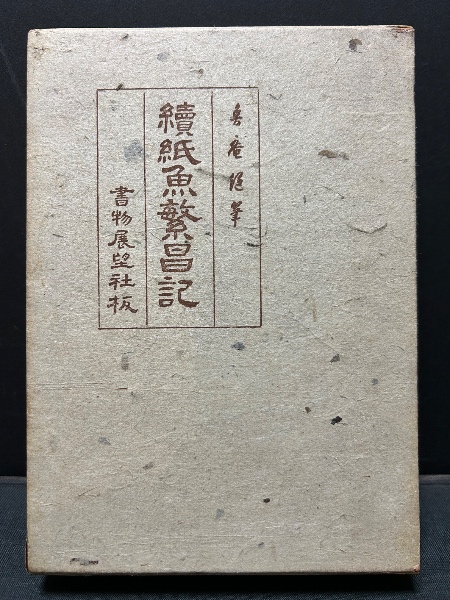 魯庵随筆
續紙魚繁昌記
書物展望社板